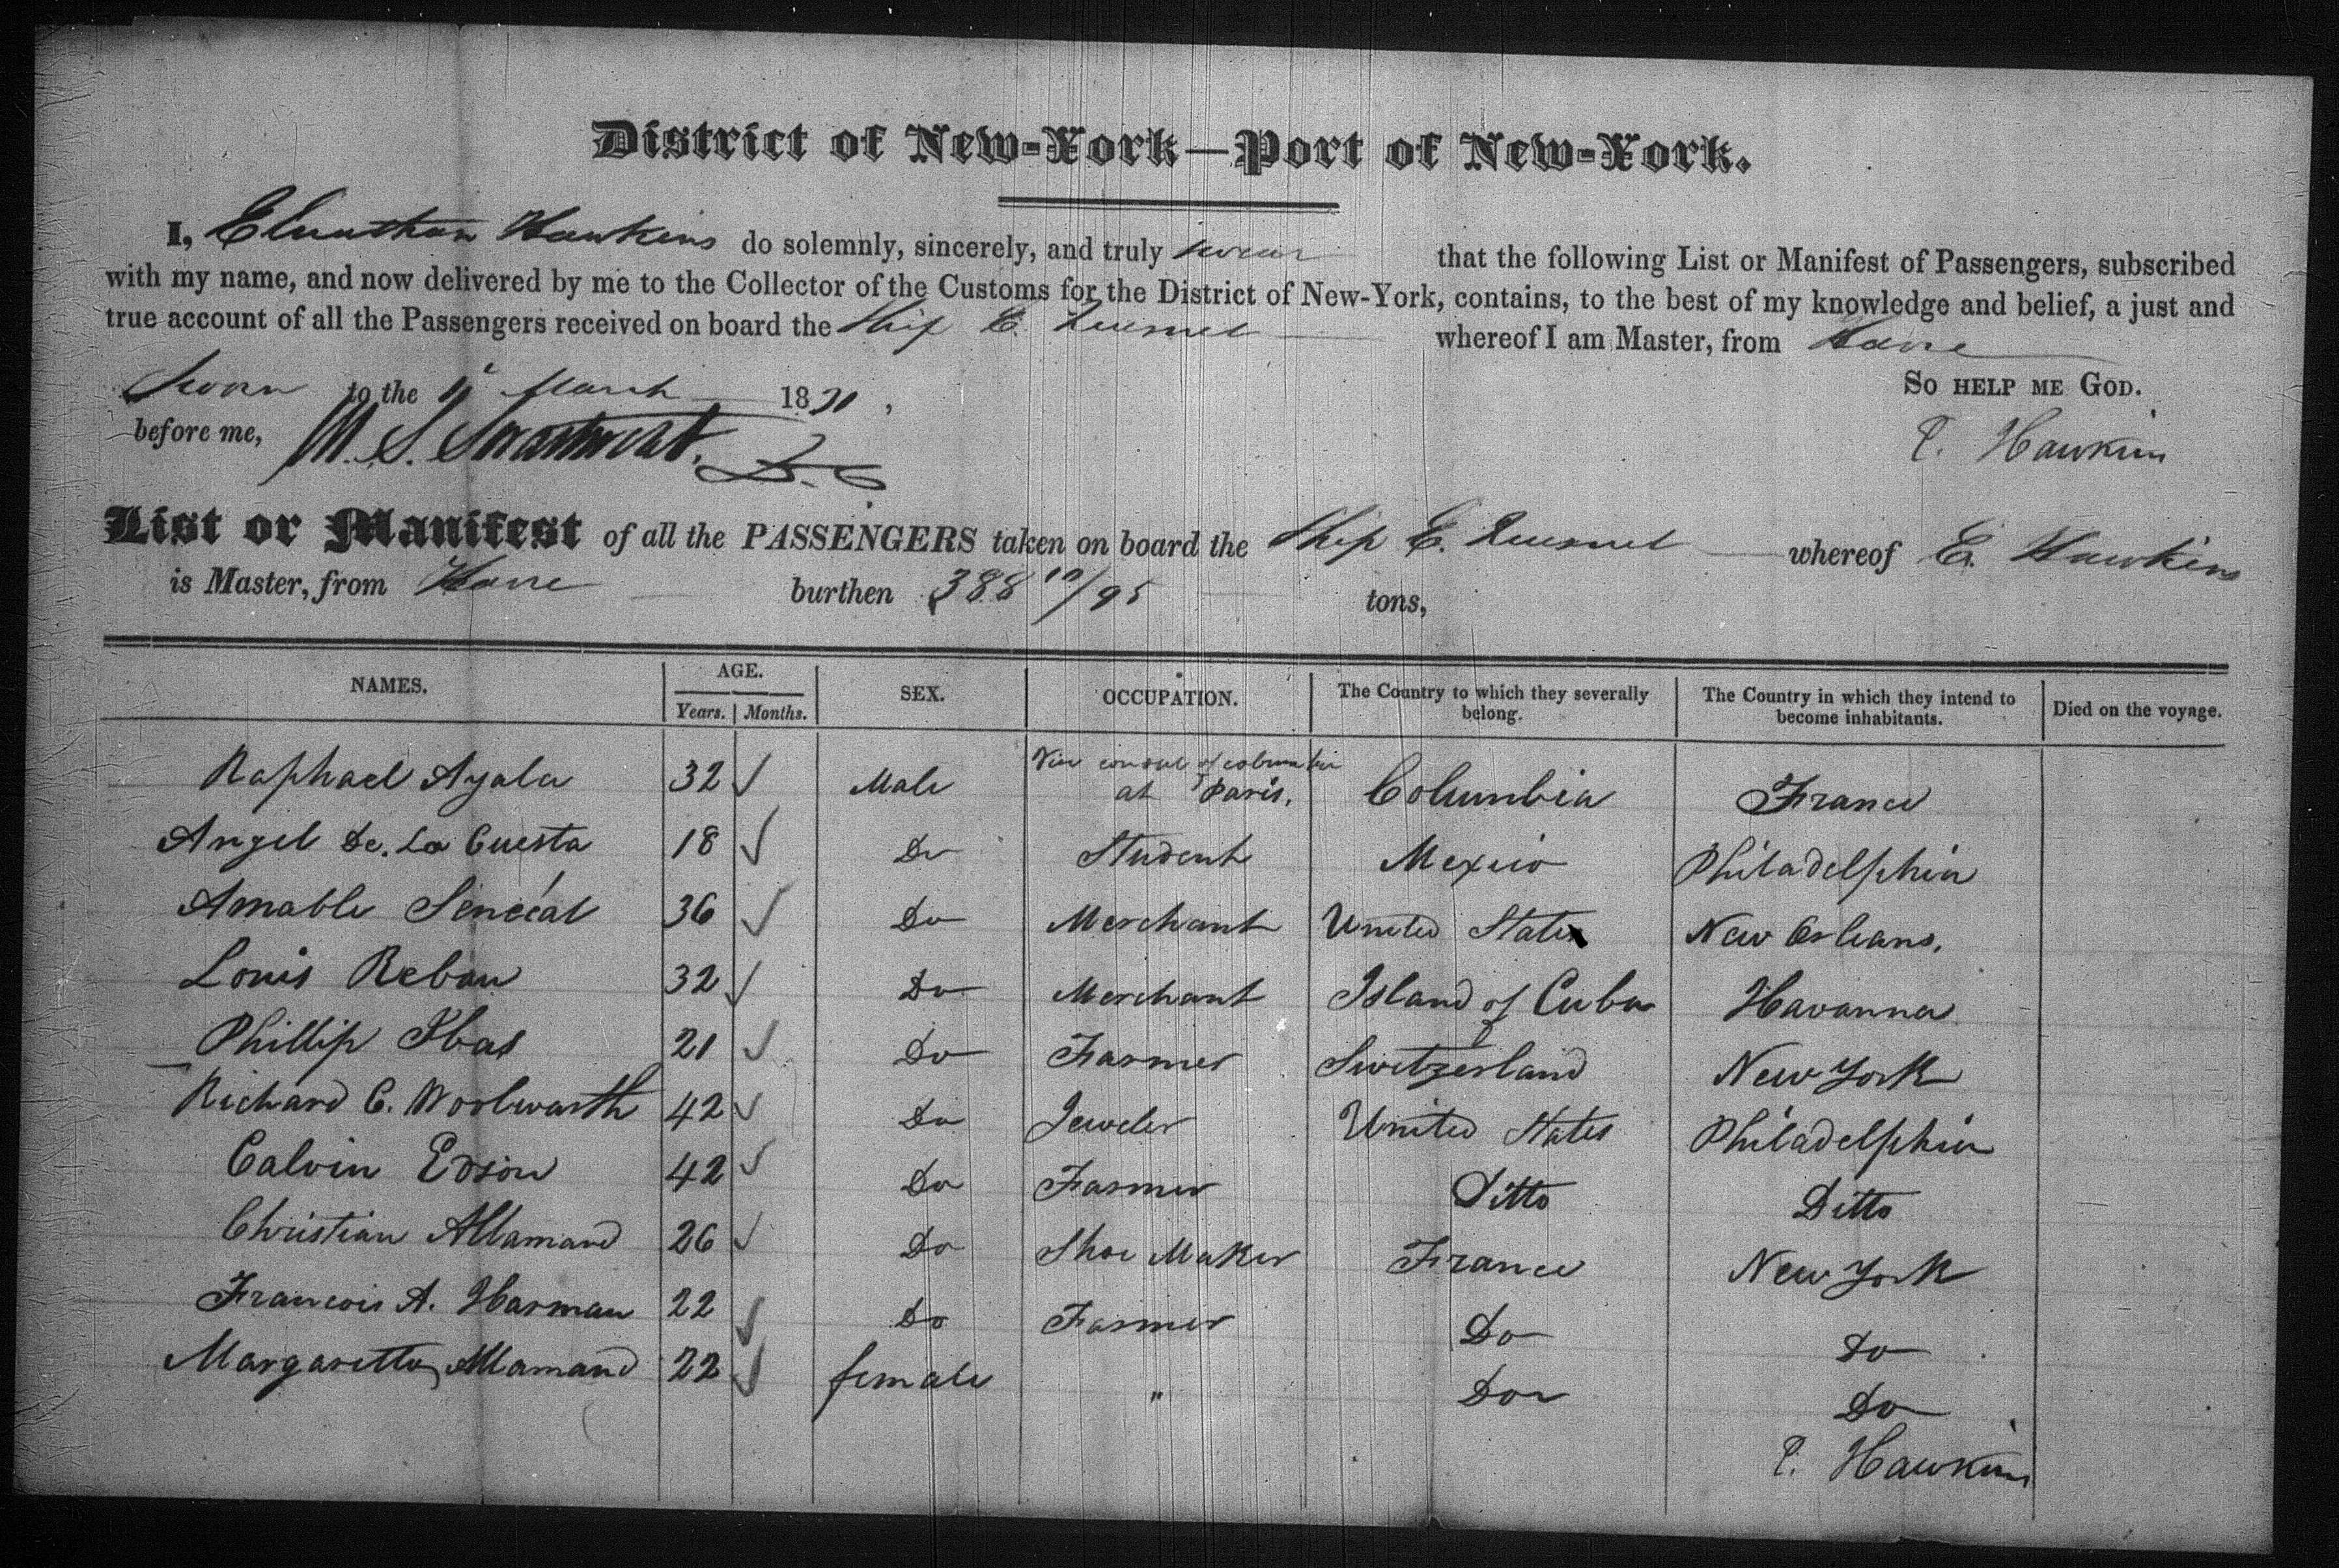 District of New-York—Port of New-York.
I, Elnathan Hawkins do solemnly, sincerely, and truly swear that the following List or Manifest of Passengers, subscribed
with my name, and now delivered by me to the Collector of the Customs for the District of New-York, contains, to the best of my knowledge and belief, a just and
true account of all the Passengers received on board the Ship E. Quesnel whereof I am Master, from Havre
So HELP ME GOD.
Sworn to the March 1831,
before me, M. S. Swartwout. D. C
E. Hawkins
List or Manifest of all the PASSENGERS taken on board the Ship E. Quesnel whereof E. Hawkins
is Master, from Havre burthen 388 /95 tons,
NAMES. AGE. Years. Months. SEX. OCCUPATION. The Country to which they severally belong. The Country in which they intend to become inhabitants. Died on the voyage.
Raphael Ayala 32 Male Vice consul of columbia at Paris. Columbia France
Angel De. La Cuesta 18 Do Student Mexico Philadelphia
Amable Sénécal 36 Do Merchant United States New Orleans.
Louis Rebau 32 Do Merchant Island of Cuba Havanna
Phillip 21 Do Farmer Switzerland New York
Richard C. Woolwarth 42 Do Jeweler United States Philadelphia
Calvin Edson 42 Do Farmer Ditto Ditto
Christian Allamand 26 Do Shoe Maker France New York
Francois A. Harman 22 Do Farmer Do Do
Margaretta Allamand 22 female " Do Do
E. Hawkins